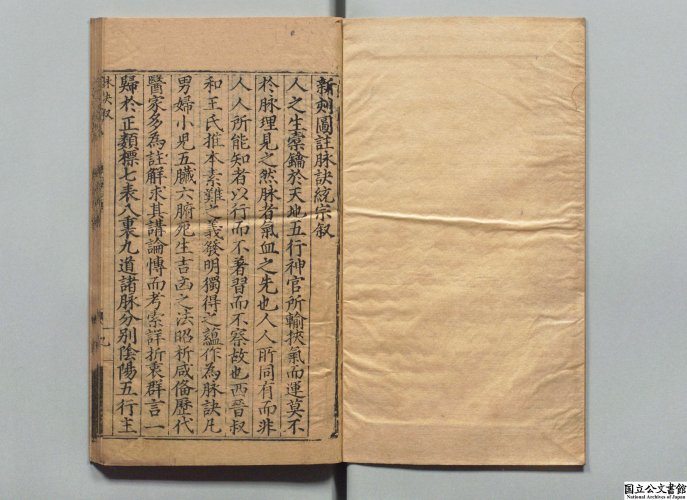 新刻圖註脉訣統宗叙
人之生橐鑰於天地五行神官所輸挾氣而運莫不
於脉理見之然脉者氣血之先也人人所同有而非
人人所能知者以行而不著習而不察故也西晋叔
和王氏推本素難之義發明獨得之蘊作為脉訣凡
男婦小兒五臟六腑死生吉凶之法昭析咸俻歷代
醫家多為註解求其講論慱而考索詳折衷群言一
歸於正類標七表八裏九道諸脉分别陰陽五行主
脉訣叙
国立公文書館
National Archives of Japan